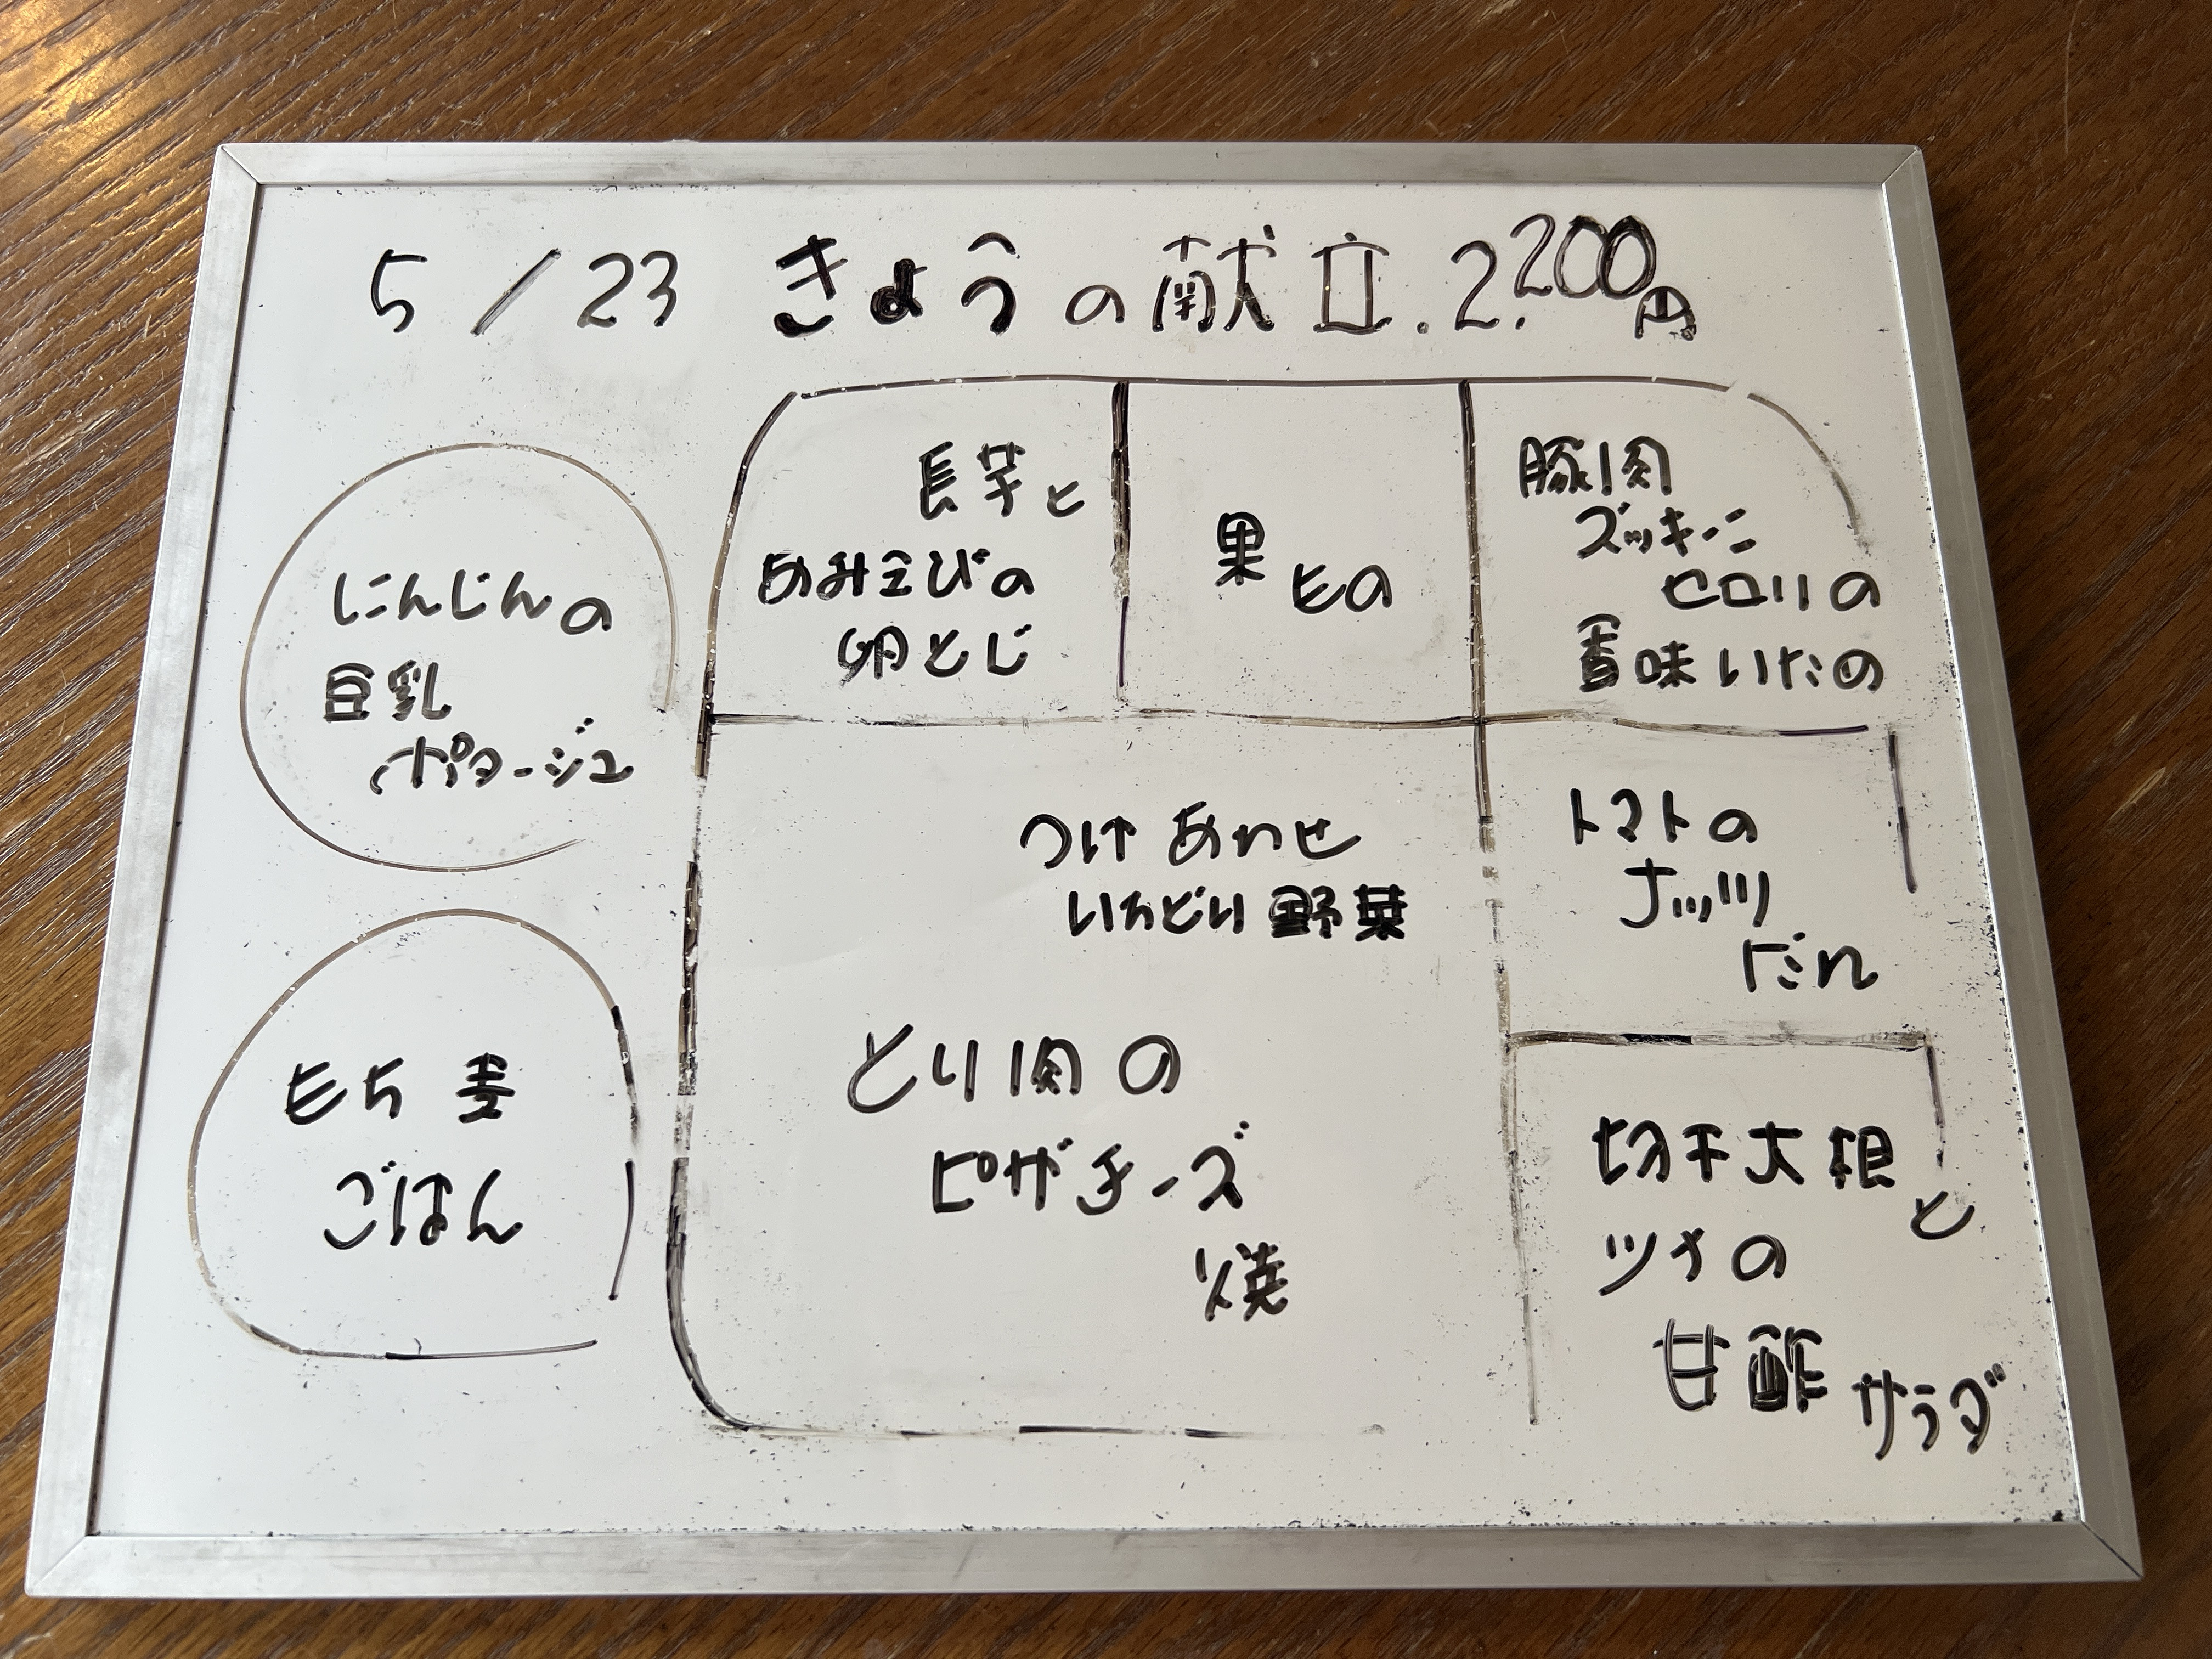 5/23 きょうの献立.2,200円
にんじんの
豆乳
ポタージュ
もち麦
ごはん
長芋と
あみえびの
卵とじ
果もの
豚肉
ズッキーニ
セロリの
香味いため
つけあわせ
いろどり野菜
とり肉の
ピザチーズ
焼
トマトの
ナッツ
だれ
切干大根と
ツナの
甘酢サラダ